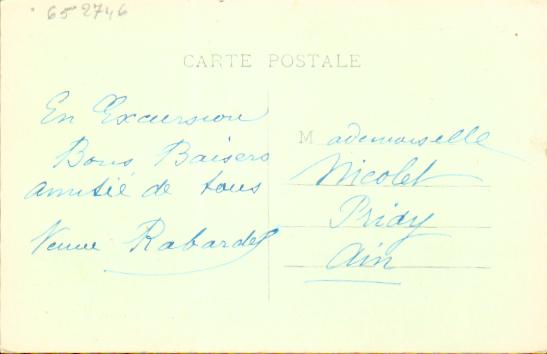 65 2746
CARTE POSTALE
En Excursion
Bons Baisers
amitié de tous
Veuve Rabardel
Mademoiselle
Nicolet
Pridy
Ain